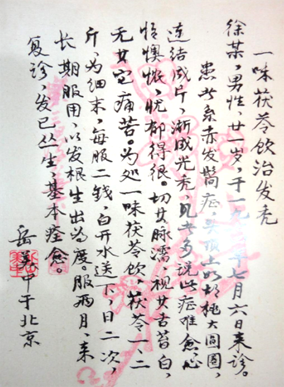 一味茯苓饮治发秃
徐某，男性，廿一岁，于一九 年七月六日来诊。
患者系 发 症，其顶上如胡桃大圆圈，
连结成片，渐成光秃，见者多说此症难愈，心
情懊恼，忧郁得很。切其脉濡，视其舌苔白，
无其它痛苦。为处一味茯苓饮，茯苓一二
斤，为细末，每服二钱，白开水送下，一日二次，
长期服用，以发根生出为度。服两月，来
复诊，发已丛生，基本痊愈。
岳美中于北京